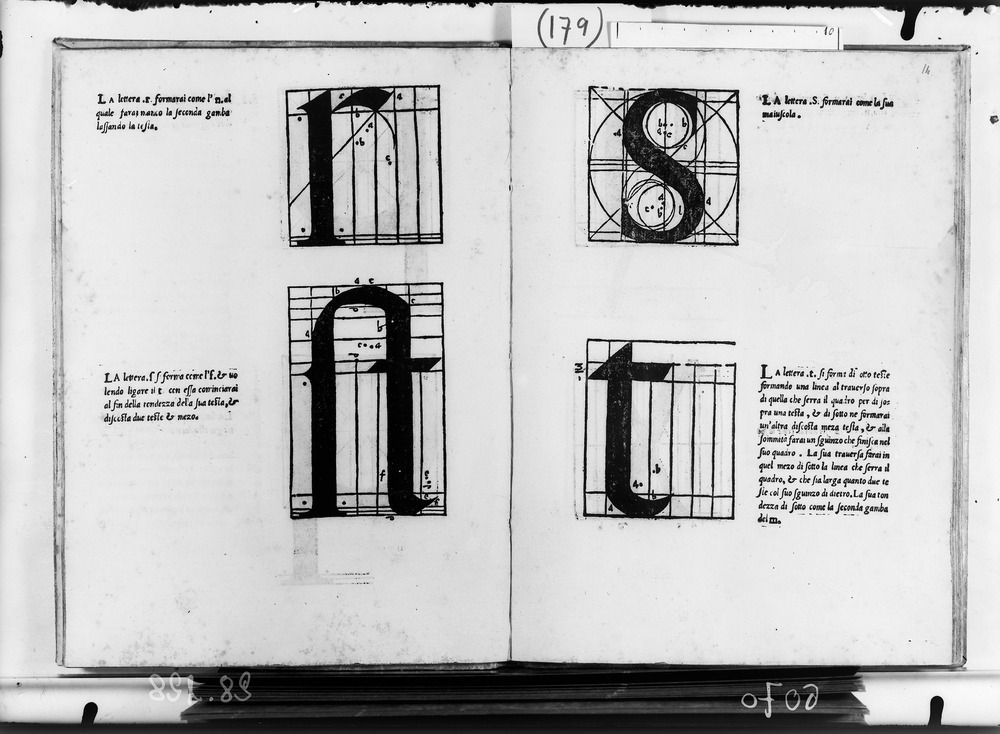 (179)
10
14
LA lettera .r. formarai come l'n. al
quale farai manco la seconda gamba
lassando la testa.
LA lettera .S. formarai come la sua
maiuscola.
LA lettera. ſſ ferma come l'f. & uo
lendo ligare il t con essa cominciarai
al fin della tondezza della sua testa, &
discosta due teste & mezo.
LA lettera .t. si forma di otto teste
formando una linea al trauerso sopra
di quella che serra il quadro per di sos
pra una testa, & di sotto ne formarai
un'altra discosta meza testa, & alla
sommità farai un sguinzo che finisca nel
suo quadro. La sua trauersa farai in
quel mezo di sotto la linea che serra il
quadro, & che sia larga quanto due te
ste col suo sguinzo di dietro. La sua ton
dezza di sotto come la seconda gamba
del m.
28.128
6070